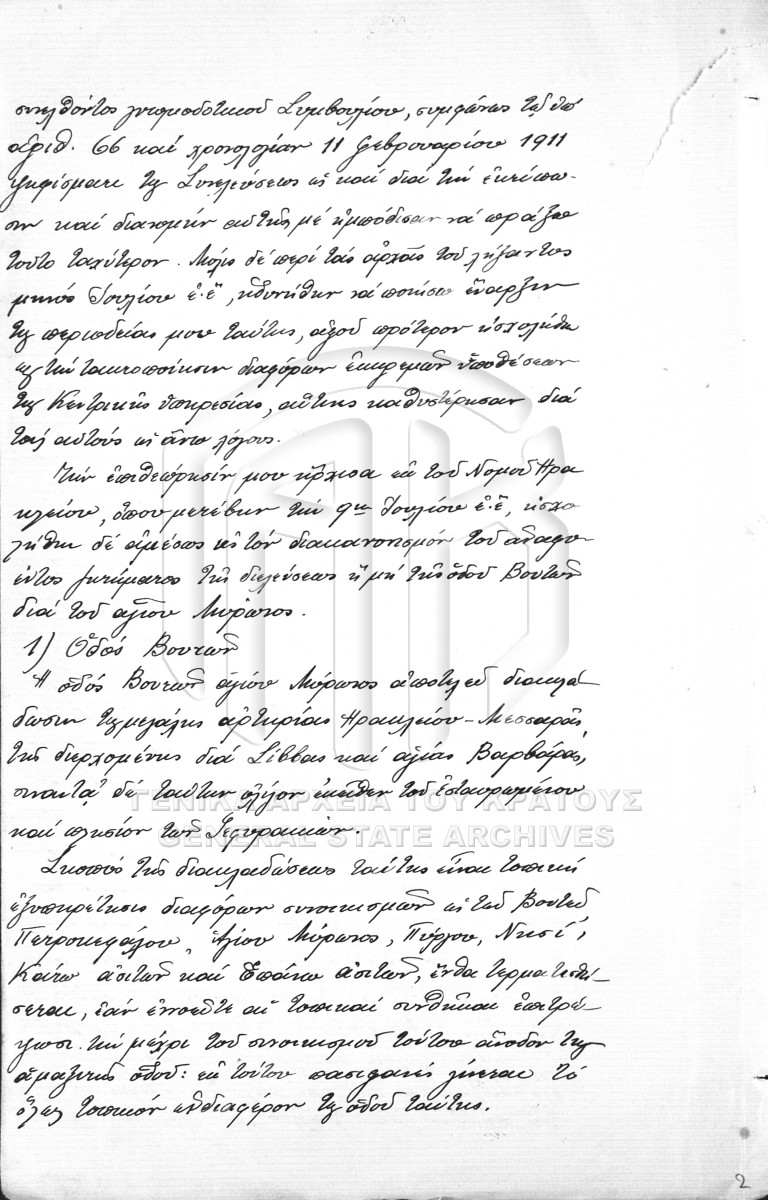 συνελθόντος γνωμοδοτικοῦ Συμβουλίου, συμφώνως τῷ ὑπ'
ἀριθ. 66 καί χρονολογίαν 11 Φεβρουαρίου 1911
ψηφίσματι τῆς Συνελεύσεως ὡς καί διά τήν ἐκτύπω-
σιν καί διανομήν αὐτῆς μέ ἠμπόδισαν νά πράξω
τοῦτο ταχύτερον. Μόλις δέ περί τάς ἀρχάς τοῦ λήξαντος
μηνός Ἰουλίου ἐ.ἔ., ἠδυνήθην νά ποιήσω ἔναρξιν
τῆς περιοδείας μου ταύτης, ἀφοῦ πρότερον ἠσχολήθην
εἰς τήν τακτοποίησιν διαφόρων ἐκκρεμῶν ὑποθέσεων
τῆς Κεντρικῆς ὑπηρεσίας, αἵτινες καθυστέρησαν διά
τούς αὐτούς ὡς ἄνω λόγους.
Τήν ἐπιθεώρησίν μου ἤρχισα ἐκ τοῦ Νομοῦ Ἡρα-
κλείου, ὅπου μετέβην τήν 9ην Ἰουλίου ἐ.ἔ., ἠσχο-
λήθην δέ ἀμέσως εἰς τόν διακανονισμόν τοῦ ἀναφυ-
έντος ζητήματος τῆς διελεύσεως ἤ μή τῆς ὁδοῦ Βουτῶν
διά τοῦ ἁγίου Μύρωνος.
1) Ὁδός Βουτῶν
Ἡ ὁδός Βουτῶν ἁγίου Μύρωνος ἀποτελεῖ διακλά-
δωσιν τῆς μεγάλης ἀρτηρίας Ἡρακλείου-Μεσσαρᾶς,
τῆς διερχομένης διά Σίββας καί ἁγίας Βαρβάρας,
συναντᾷ δέ ταύτην ὀλίγον ἐκεῖθεν τοῦ Ἐσταυρωμένου
καί πλησίον τῶν Γεφυρακίων.
Σκοπός τῆς διακλαδώσεως ταύτης εἶναι τοπική
ἐξυπηρέτησις διαφόρων συνοικισμῶν ὡς τοῦ Βουτῶν,
Πετροκεφάλου, Ἁγίου Μύρωνος, Πύργου, Νησί,
Κάτω ἀσιτῶν καί Ἐπάνω ἀσιτῶν, ἔνθα τερματισθή-
σεται, ἐάν ἐννοεῖτε αἱ τοπικαί συνθῆκαι ἐπιτρέ-
ψωσι τήν μέχρι τοῦ συνοικισμοῦ τούτου ἄνοδον τῆς
ἁμαξιτῆς ὁδοῦ: ἐκ τούτου πασιφανές γίνεται τό
ὅλως τοπικόν ἐνδιαφέρον τῆς ὁδοῦ ταύτης.
ΓΕΝΙΚΑ ΑΡΧΕΙΑ ΤΟΥ ΚΡΑΤΟΥΣ
GENERAL STATE ARCHIVES
2